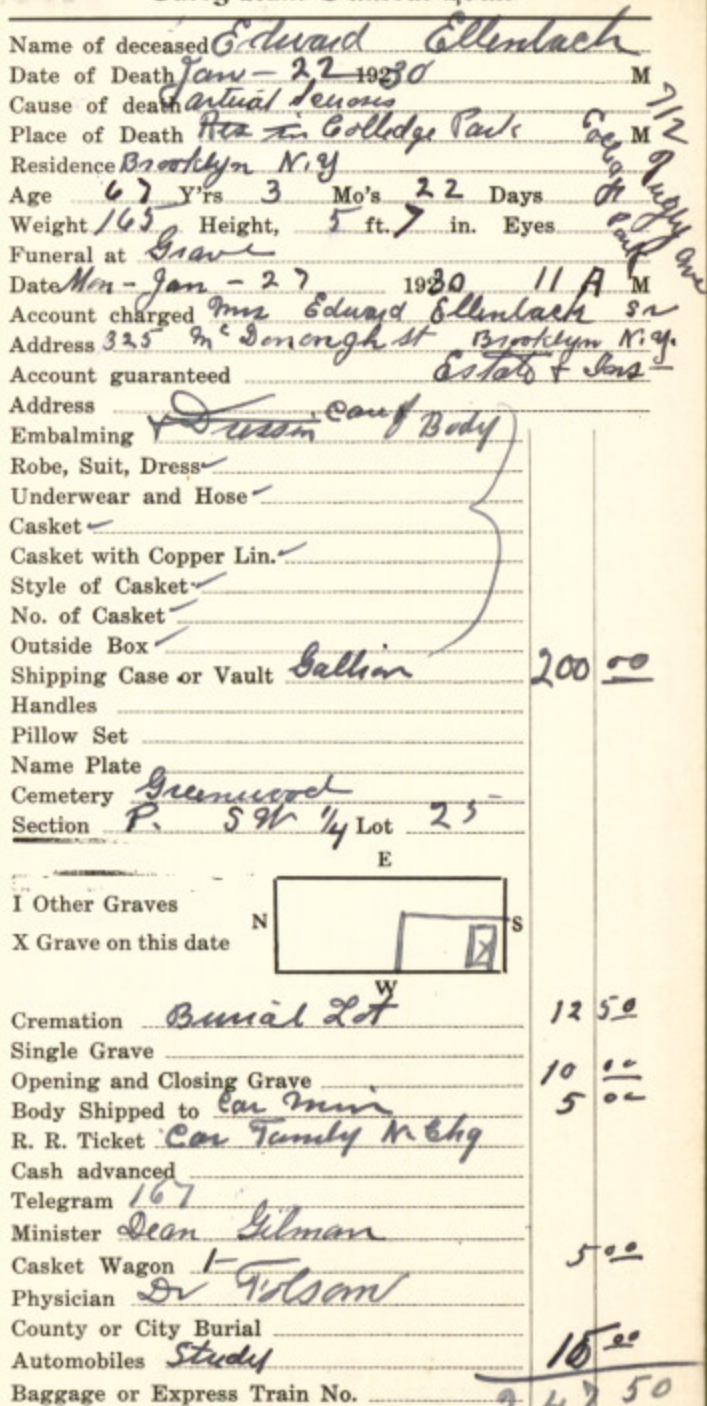 Name of deceased Edward Ellenbach
Date of Death Jan - 22 1930 M
Cause of death
Place of Death Res in Colledge Park M
712 Rugby Ave
College Park
Residence Brooklyn N.Y
Age 67 Y'rs 3 Mo's 22 Days
Weight 165 Height, 5 ft. 7 in. Eyes
Funeral at Grave
Date Mon - Jan - 27 1930 11 A M
Account charged Mrs Edward Ellenbach Sr
Address 325 McDonongh st Brooklyn N.Y.
Account guaranteed Estate & Ins
Address
Embalming & Dressin care of Body
Robe, Suit, Dress
Underwear and Hose
Casket
Casket with Copper Lin.
Style of Casket
No. of Casket
Outside Box
Shipping Case or Vault Gallion 200 00
Handles
Pillow Set
Name Plate
Cemetery Greenwood
Section P. SW 1/4 Lot 25
E
I Other Graves
N S
X Grave on this date X
W
Cremation Burial Lot 12 50
Single Grave
Opening and Closing Grave 10 00
Body Shipped to Car Min 5 00
R. R. Ticket Car Family N Chg
Cash advanced
Telegram 167
Minister Dean Gilman
Casket Wagon 1 5 00
Physician Dr Folsom
County or City Burial
Automobiles Study 15 00
Baggage or Express Train No. 247 50